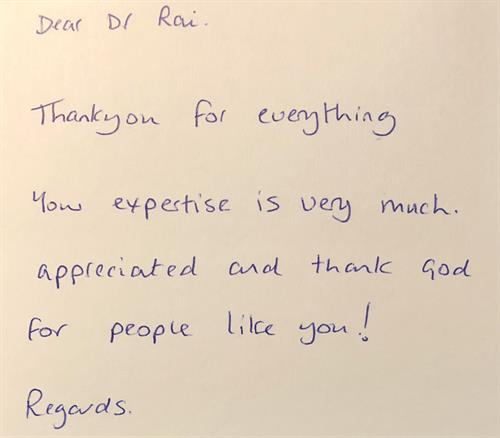 Dear Dr Rai.
Thankyou for everything
Your expertise is very much.
appreciated and thank God
for people like you!
Regards.